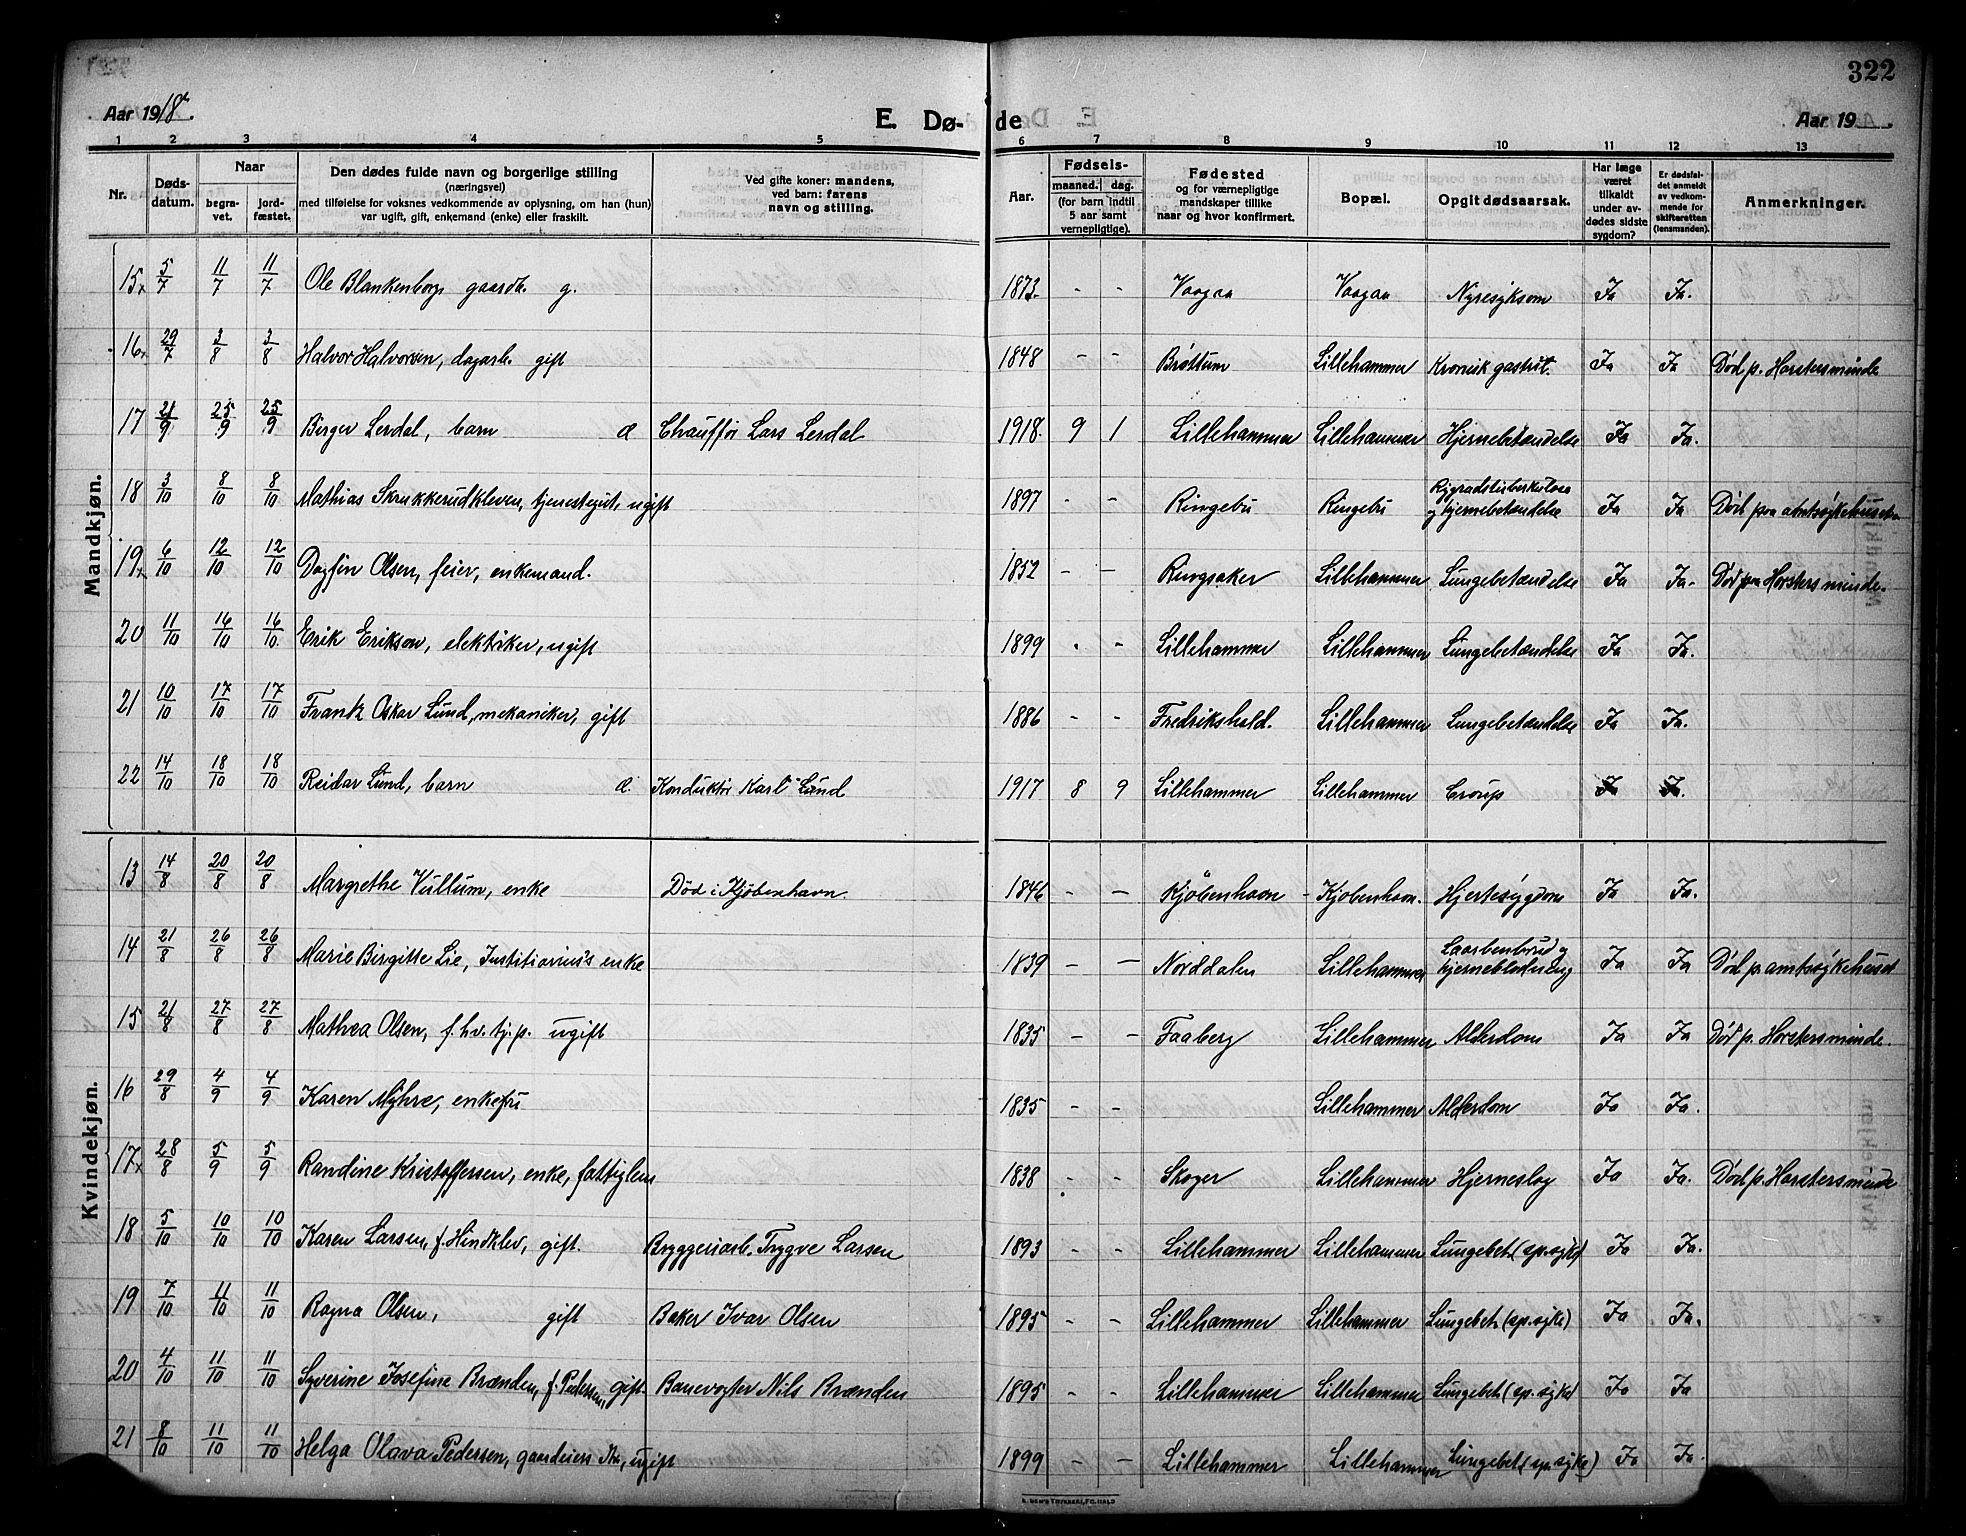 322
Aar 1918.
E. Dø- de
Aar 19
1 2 3 4 5 6 7 8 9 10 11 12 13
Nr.
Døds-datum.
Naar
begra-vet.
jord-fæstet.
Den dødes fulde navn og borgerlige stilling
(næringsvei)
med tilføielse for voksnes vedkommende av oplysning, om han (hun)
var ugift, gift, enkemand (enke) eller fraskilt.
Ved gifte koner: mandens,
ved barn: farens
navn og stilling.
Aar.
Fødsels-
maaned. dag.
(for barn indtil
5 aar samt
vernepligtige).
Fødested
og for værnepligtige
mandskaper tillike
naar og hvor konfirmert.
Bopæl.
Opgit dødsaarsak.
Har læge
været
tilkaldt
under av-
dødes sidste
sygdom?
Er dødsfal-
det anmeldt
av vedkom-
mende for
skifteretten
(lensmanden).
Anmerkninger.
Mandkjøn.
15x 5/7 11/7 11/7 Ole Blankenborg gaardb. g. 1873. - - Vaagaa Vaagaa Nyresyksom Ja Ja.
16x 29/7 3/8 3/8 Halvor Halvorsen, dagarb. gift 1848 - - Brøttum Lillehammer Kronisk gastrit. Ja Ja Død p. Horstersminde
17 21/9 25/9 25/9 Birger Lerdal, barn Chauffør Lars Lerdal 1918. 9 1 Lillehammer Lillehammer Hjernebetændelse Ja Ja.
18 3/10 8/10 8/10 Mathias Skrukkerudkleven, tjenestegut, ugift 1897 - - Ringebu Ringebu Rygradstuberkulose
og hjernebetændelse Ja Ja Død paa amtsykehuset
19x 6/10 12/10 12/10 Dagfin Olsen, feier, enkemand. 1852 - - Ringsaker Lillehammer Lungebetændelse Ja Ja- Død paa Horstersminde.
20 11/10 16/10 16/10 Erik Erikson, elektriker, ugift 1899 - - Lillehammer Lillehammer Lungebetændelse Ja Ja.
21 10/10 17/10 17/10 Frank Oskar Lund, mekaniker, gift 1886 - - Fredrikshald. Lillehammer Lungebetændelse Ja Ja.
22 14/10 18/10 18/10 Reidar Lund, barn Konduktør Karl Lund 1917 8 9 Lillehammer Lillehammer Croup Ja Ja.
Kvindekjøn.
13 14/8 20/8 20/8 Margrethe Vullum, enke Død i Kjøbenhavn. 1846 - - Kjøbenhavn - Kjøbenhavn. Hjertesygdom Ja Ja.
14 21/8 26/8 26/8 Marie Birgitte Lie, Justitiarius's enke 1839 - - Norddalen Lillehammer Laarbenbrud og
hjerneblødning Ja Ja Død p. amtsykehuset
15 21/8 27/8 27/8 Mathea Olsen, f.hv. tj.p. ugift 1835 - - Faaberg Lillehammer Alderdom Ja Ja Død p. Horstersminde.
16 29/8 4/9 4/9 Karen Myhre, enkefru 1835 - - Lillehammer Alderdom Ja Ja.
17x 28/8 5/9 5/9 Randine Kristoffersen, enke, fattiglem 1838 - - Skoger Lillehammer Hjerneslag Ja Ja. Død p. Horstersminde
18 5/10 10/10 10/10 Karen Larsen, f. Hindklev, gift. Bryggeriarb. Trygve Larsen 1893 - - Lillehammer Lillehammer Lungebet. (sp.syke) Ja Ja.
19 7/10 11/10 11/10 Ragna Olsen, gift Baker Ivar Olsen 1895 - - Lillehammer Lillehammer Lungebet. (sp.syke) Ja Ja.
20 4/10 11/10 11/10 Syverine Josefine Brænden, f. Pedersen, gift. Banevogter Nils Brænden 1895 - - Lillehammer Lillehammer Lungebet. (sp.syke) Ja Ja
21 8/10 11/10 11/10 Helga Olava Pedersen, gaardeiers dtr., ugift 1899 - - Lillehammer Lillehammer Lungebet. (sp.syke) Ja Ja.